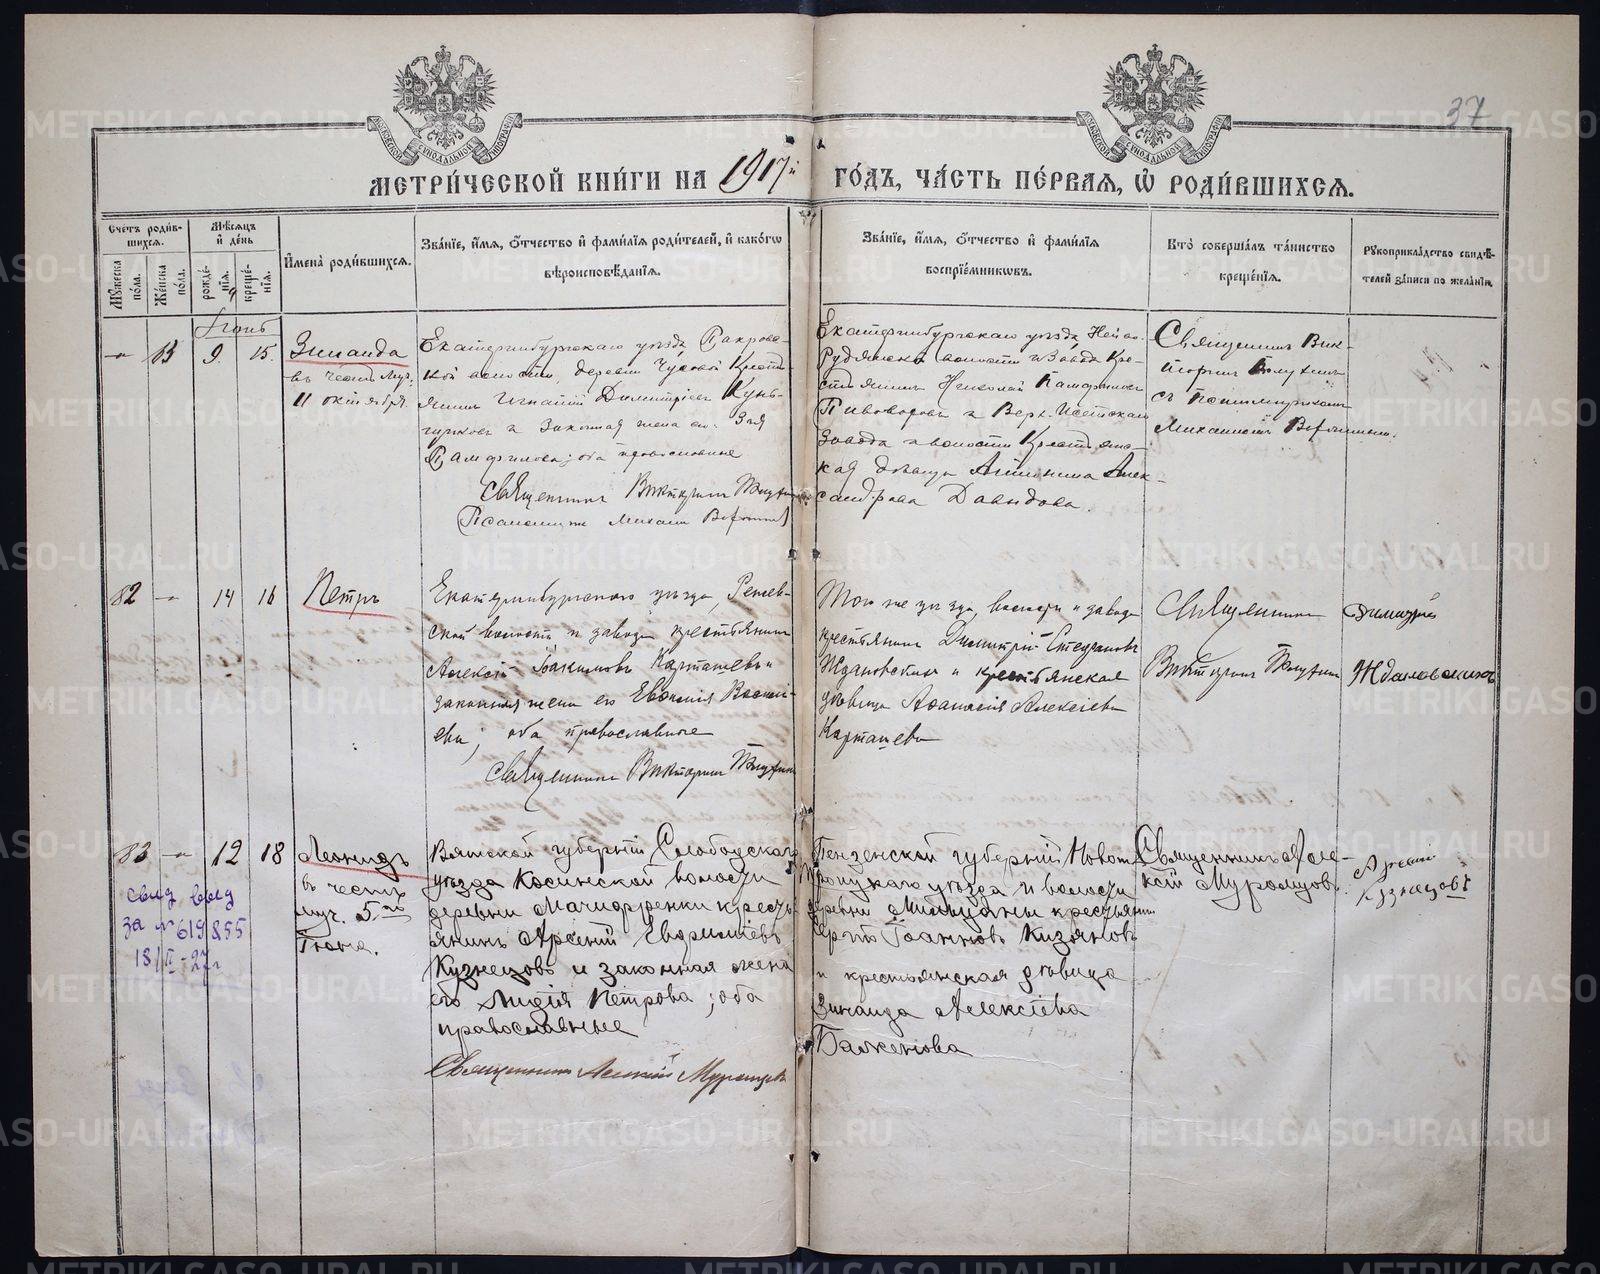 37
МОСКОВСКОЙ СУНОДАЛЬНОЙ ТИПОГРАФІИ
МОСКОВСКОЙ СУНОДАЛЬНОЙ ТИПОГРАФІИ
МЕТРИ́ЧЕСКОЙ КНИ́ГИ НА 1917й ГО́ДЪ, ЧА́СТЬ ПЕ́РВАЯ, Ѡ РОДИ́ВШИХСЯ.
Счетъ роди́вшихся.
Мужеска по́ла.
Же́нска по́ла.
Мѣ́сяцъ и де́нь
рожде́нія.
креще́нія.
Имена̀ роди́вшихся.
Зва́ніе, и́мя, о́тчество и фами́лія роди́телей, и како́гѡ
вѣроисповѣ́данія.
Зва́ніе, и́мя, о́тчество и фами́лія
воспріе́мниковъ.
Кто̀ соверша́лъ та́инство
креще́нія.
Рукоприкла́дство свидѣ́-
телей за́писи по жела́нію.
Іюнь
9. 15.
Зинаида
въ честь муч.
11 октября.
Екатеринбургскаго уѣзда, Покров-
ской волости, деревни Чусовой Крест-
янинъ Игнатій Димитріевъ Кун-
гурковъ и Законная жена его Зоя
Памфилова; оба православные
Священникъ
Псаломщикъ Михаилъ
Екатеринбургскаго уѣзда, Нейво-
Рудянской волости и Завода Кре-
стьянинъ Николай Памфиловъ
Пивоваровъ и Верх-Исетскаго
Завода и волости Крестьянс-
кая дѣвица Антонина Алек-
сандрова Давыдова.
Священникъ Вик-
торинъ
съ Псаломщикомъ
Михаиломъ
82 — 14 16
Петръ
Екатеринбургскаго уѣзда, Режев-
ской волости и завода крестьянинъ
Алексѣй Карташевъ и
законная жена его Евдокія Василі-
ева; оба православные
Священникъ Викторинъ
Того же уѣзда, волости и завода
крестьянинъ Димитрій Стефановъ
Ждановскихъ и крестьянская
дѣвица Аѳанасія Алексіева
Карташева
Священникъ
Викторинъ
Димитрій
Ждановскихъ
83 — 12 18
Леонидъ
въ честь
муч. 5го
Іюня.
свид выд
за № 619855
18/II-27г
Вятской губерніи Слободскаго
уѣзда Косинской волости
деревни кресть-
янинъ Арсеній Евфиміевъ
Кузнецовъ и законная жена
его Лидія Петрова; оба
православные
Священникъ Алексій Муромцевъ
Пензенской губерніи Новот-
роицкаго уѣзда и волости
деревни крестьянинъ
Сергѣй Іоанновъ
и крестьянская дѣвица
Зинаида Алексіева
Баженова
Священникъ Але-
ксій Муромцовъ.
Арсеній
Кузнецовъ